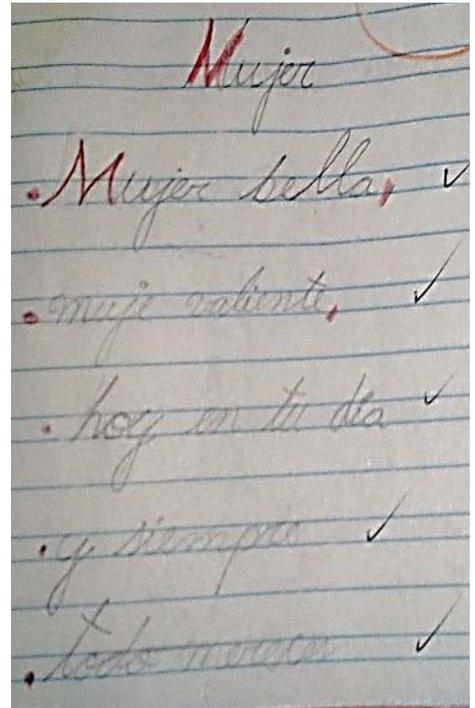 Mujer
.Mujer bella, ✓
.muje valiente, ✓
.hoy en tu día ✓
.y siempre ✓
.todo mereces ✓